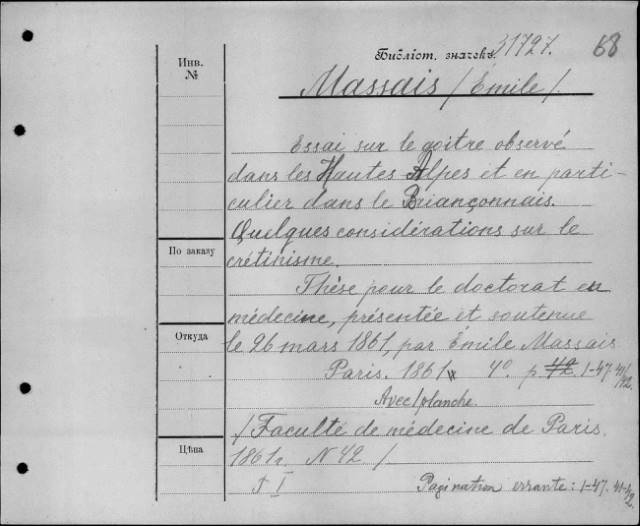 Библіот. значекъ 31727. 68
Инв.
№
Massais / Émile /.
Essai sur le goitre observé
dans les Hautes Alpes et en parti-
culier dans le Briançonnais.
Quelques considérations sur le
crétinisme.
По заказу
Thèse pour le doctorat en
médecine, présentée et soutenue
Откуда
le 26 mars 1861, par Émile Massais
Paris. 1861, 4º. p. 42. 1-47. 41/42.
Avec 1 planche.
/ Faculté de médecine de Paris.
Цѣна
1861. N 42 /
t I Pagination errante: 1-47. 41-42